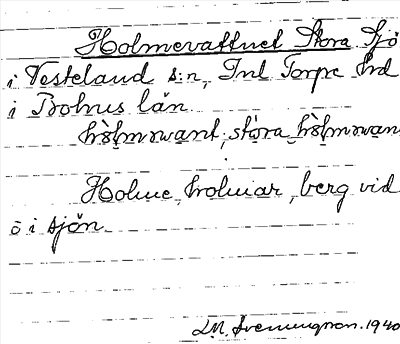 Holmevattnet Stora Sjö
i Vesteland s:n, Inl Torpe hrd
i Bohus län
hòlmøvant, stòra hòlmøvan
Holme, holmar, berg vid
ö i sjön